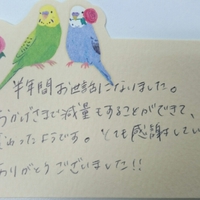 半年間お世話になりました。
おかげさまで減量もすることができて、
変わったようです。とても感謝してい
ありがとうございました!!